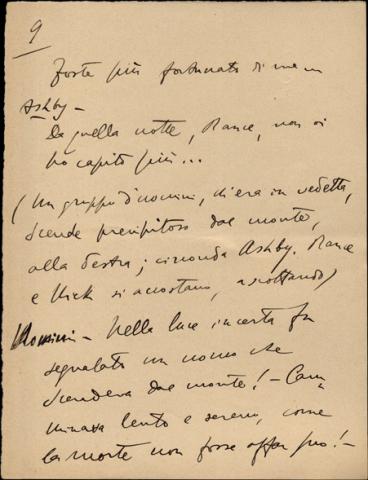 9
forse più fortunato di me
Ashby –
Da quella notte, Rance, non vi
ho capito più...
(Un gruppo d'uomini, ch'era in vedetta,
scende precipitoso dal monte,
alla destra; circonda Ashby. Rance
e Nick si accostano, ascoltando)
Uomini – Nella luce incerta fu
segnalato un uomo che
scendeva dal monte! – Cam
minava lento e sereno, come
la morte non fosse affar suo! –